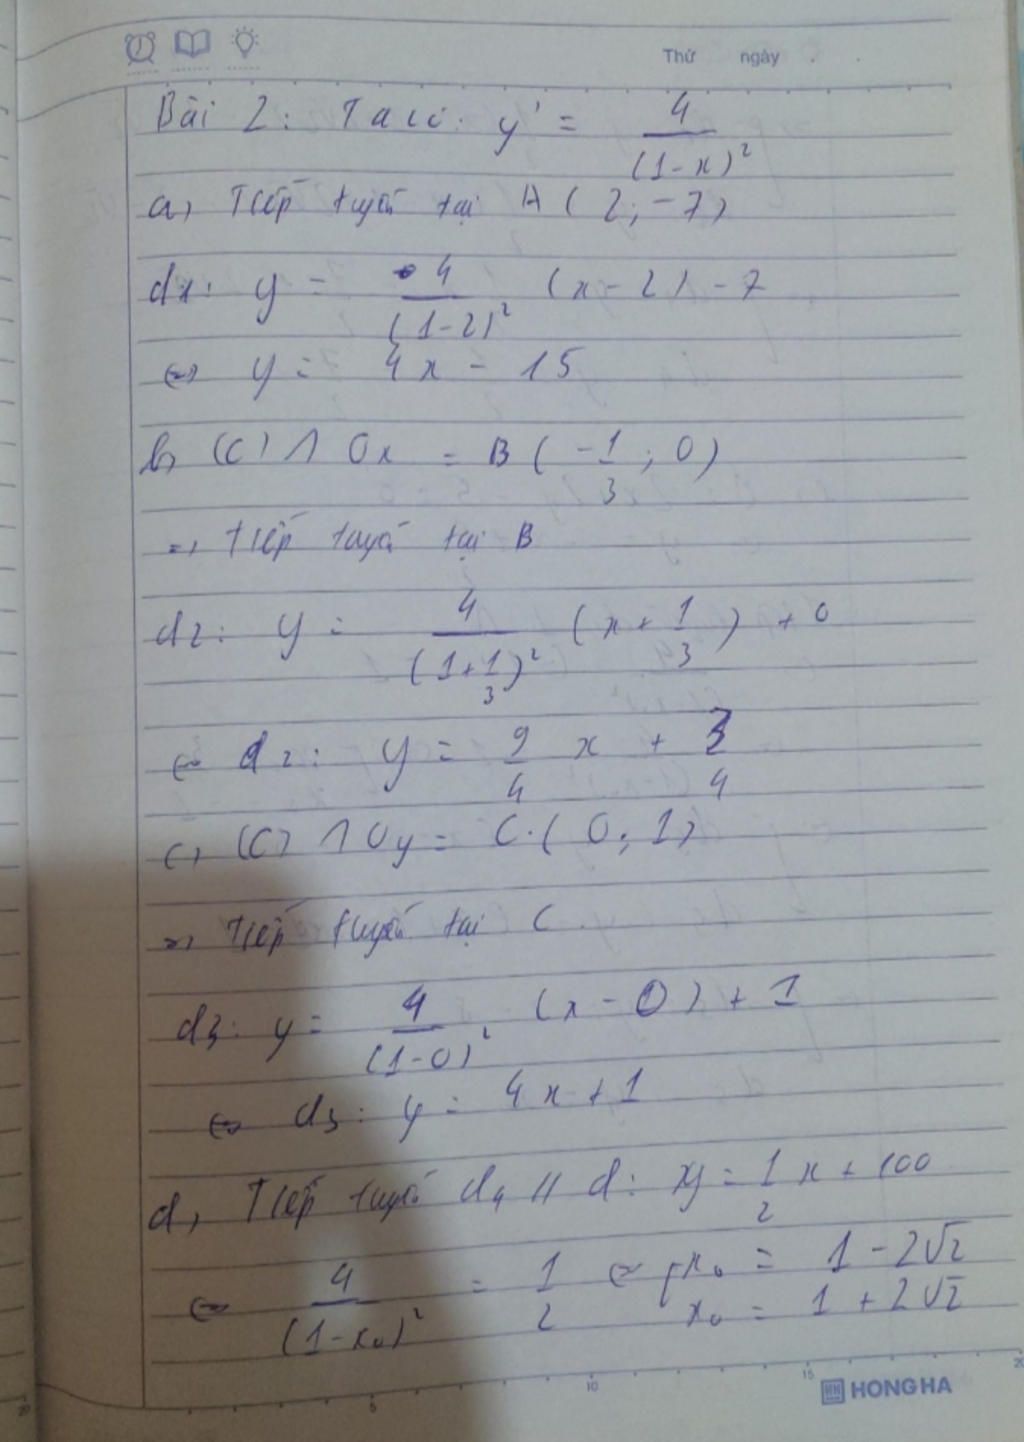 Thứ ngày
Bài 2: Ta có: y' = 4/(1-x)²
a, Tiếp tuyến tại A (2; -7)
d1: y = 4/(1-2)² (x-2) - 7
⇔ y = 4x - 15
b, (C) ∩ Ox = B (-1/3; 0)
=> Tiếp tuyến tại B
d2: y = 4/(1+1/3)² (x + 1/3) + 0
⇔ d2: y = 9/4 x + 3/4
c, (C) ∩ Oy = C. (0; 1)
=> Tiếp tuyến tại C
d3: y = 4/(1-0)². (x - 0) + 1
⇔ d3: y = 4x + 1
d, Tiếp tuyến d4 // d: y = 1/2 x + 100
⇔ 4/(1-x₀)² = 1/2 ⇔ [x₀ = 1 - 2√2
x₀ = 1 + 2√2
5 10 15 20
HH HONG HA